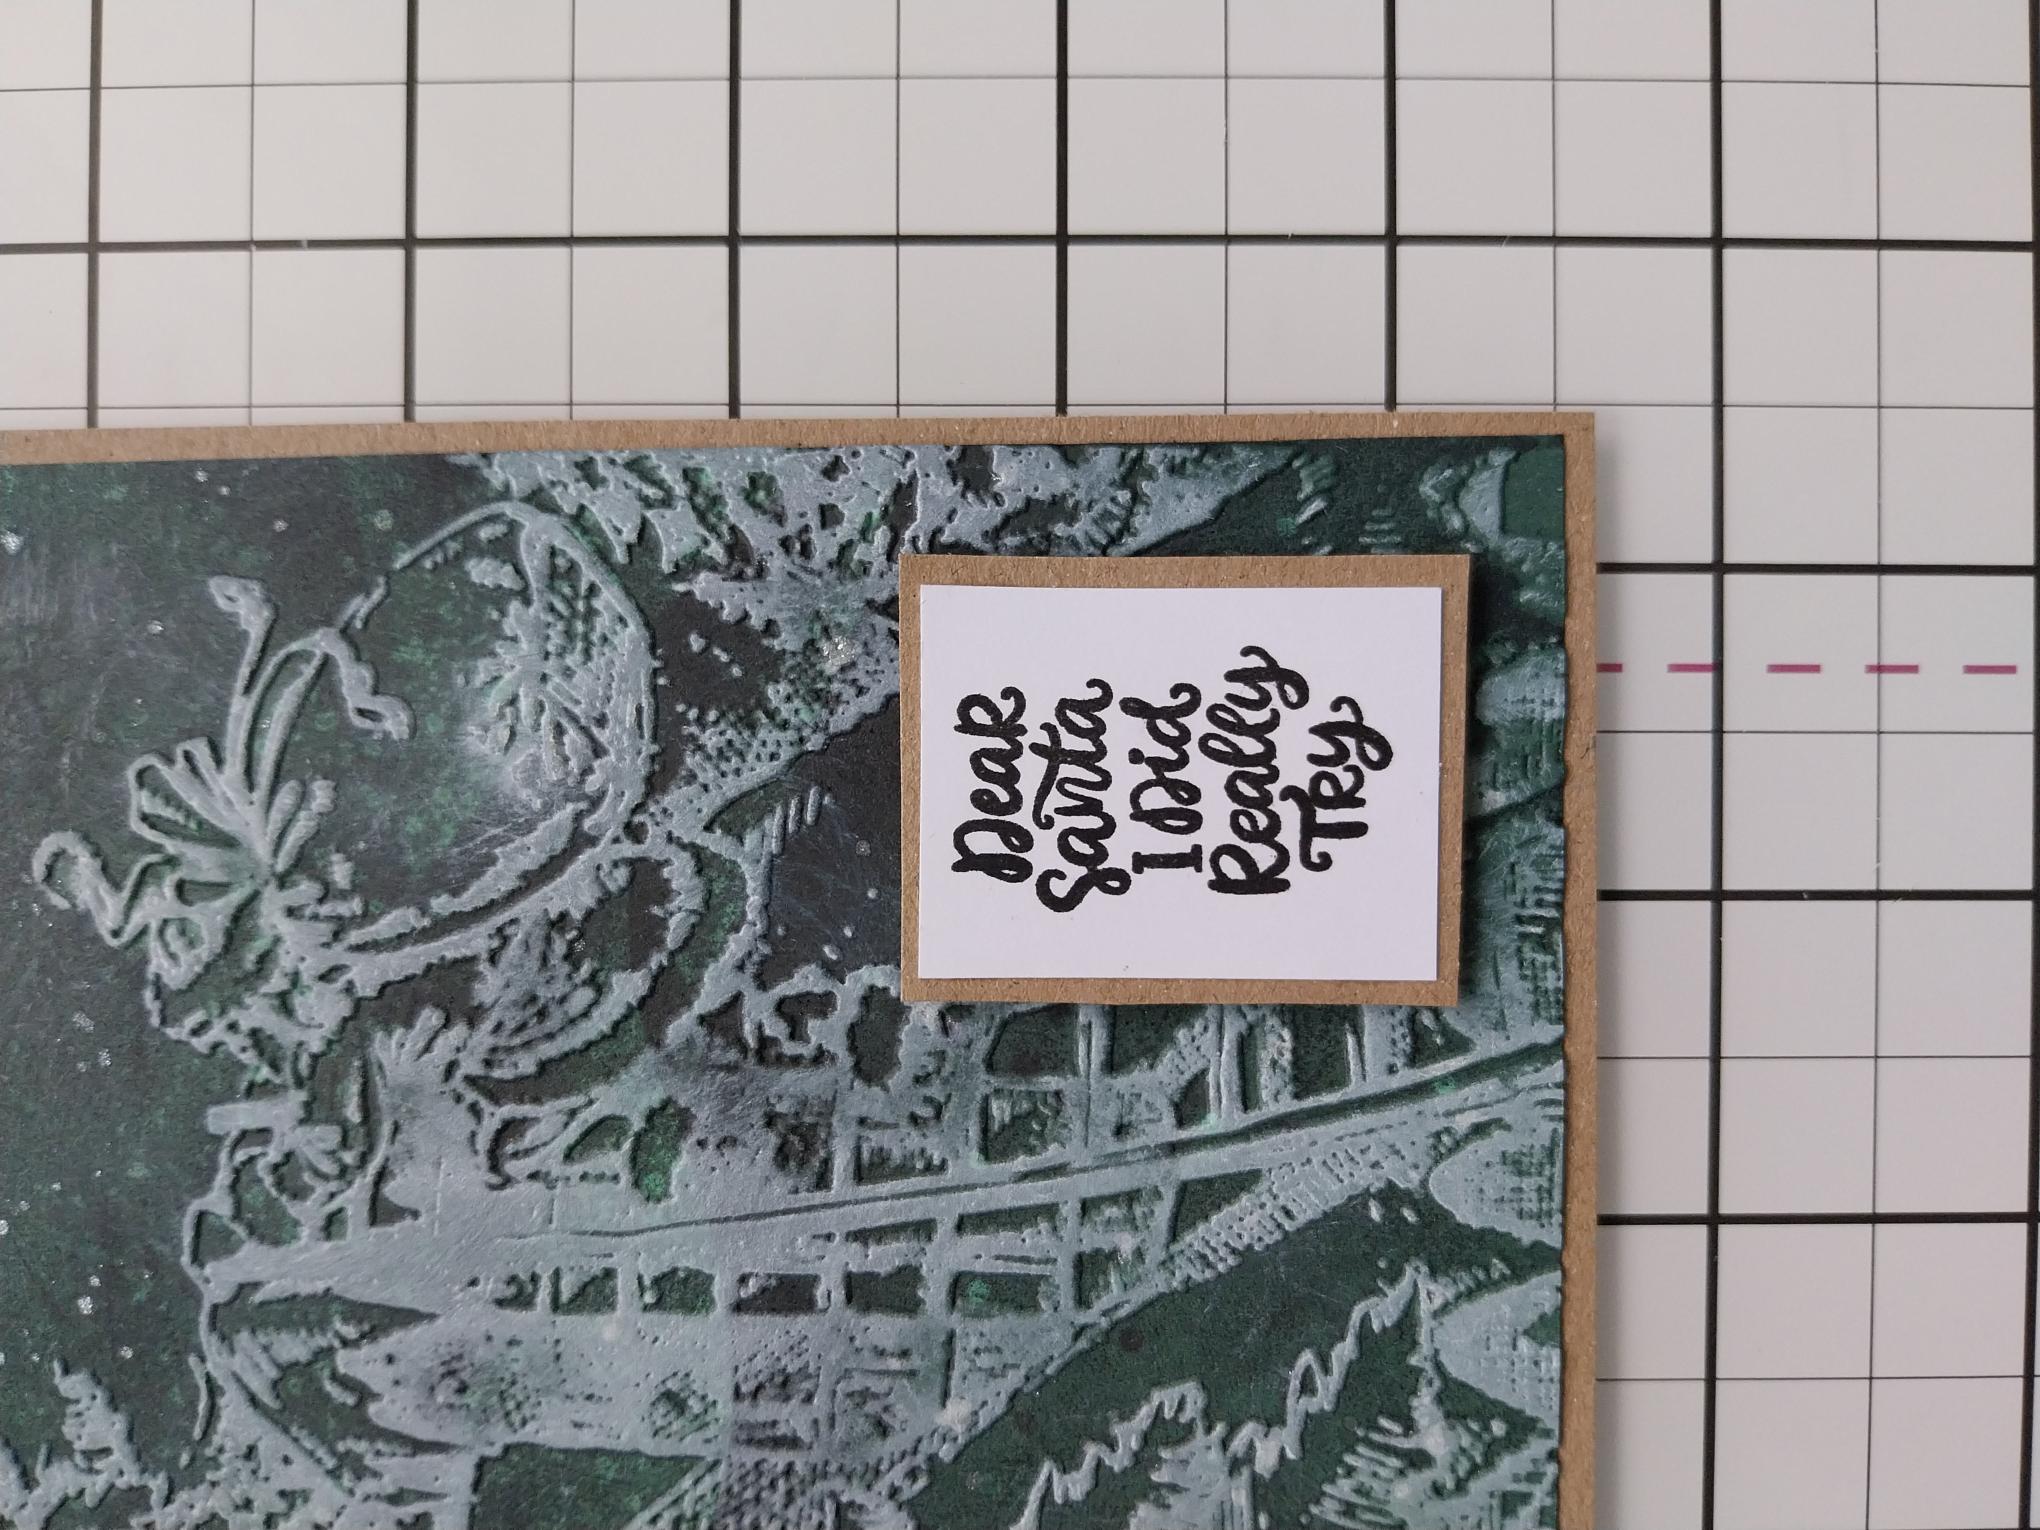 Dear
Santa
I Did
Really
Try